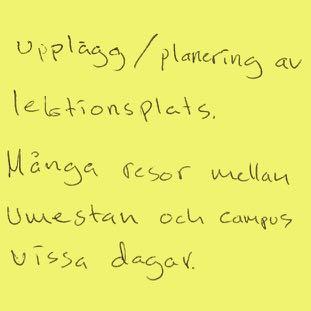 upplägg/planering av
lektionsplats.
Många resor mellan
Umestan och campus
vissa dagar.